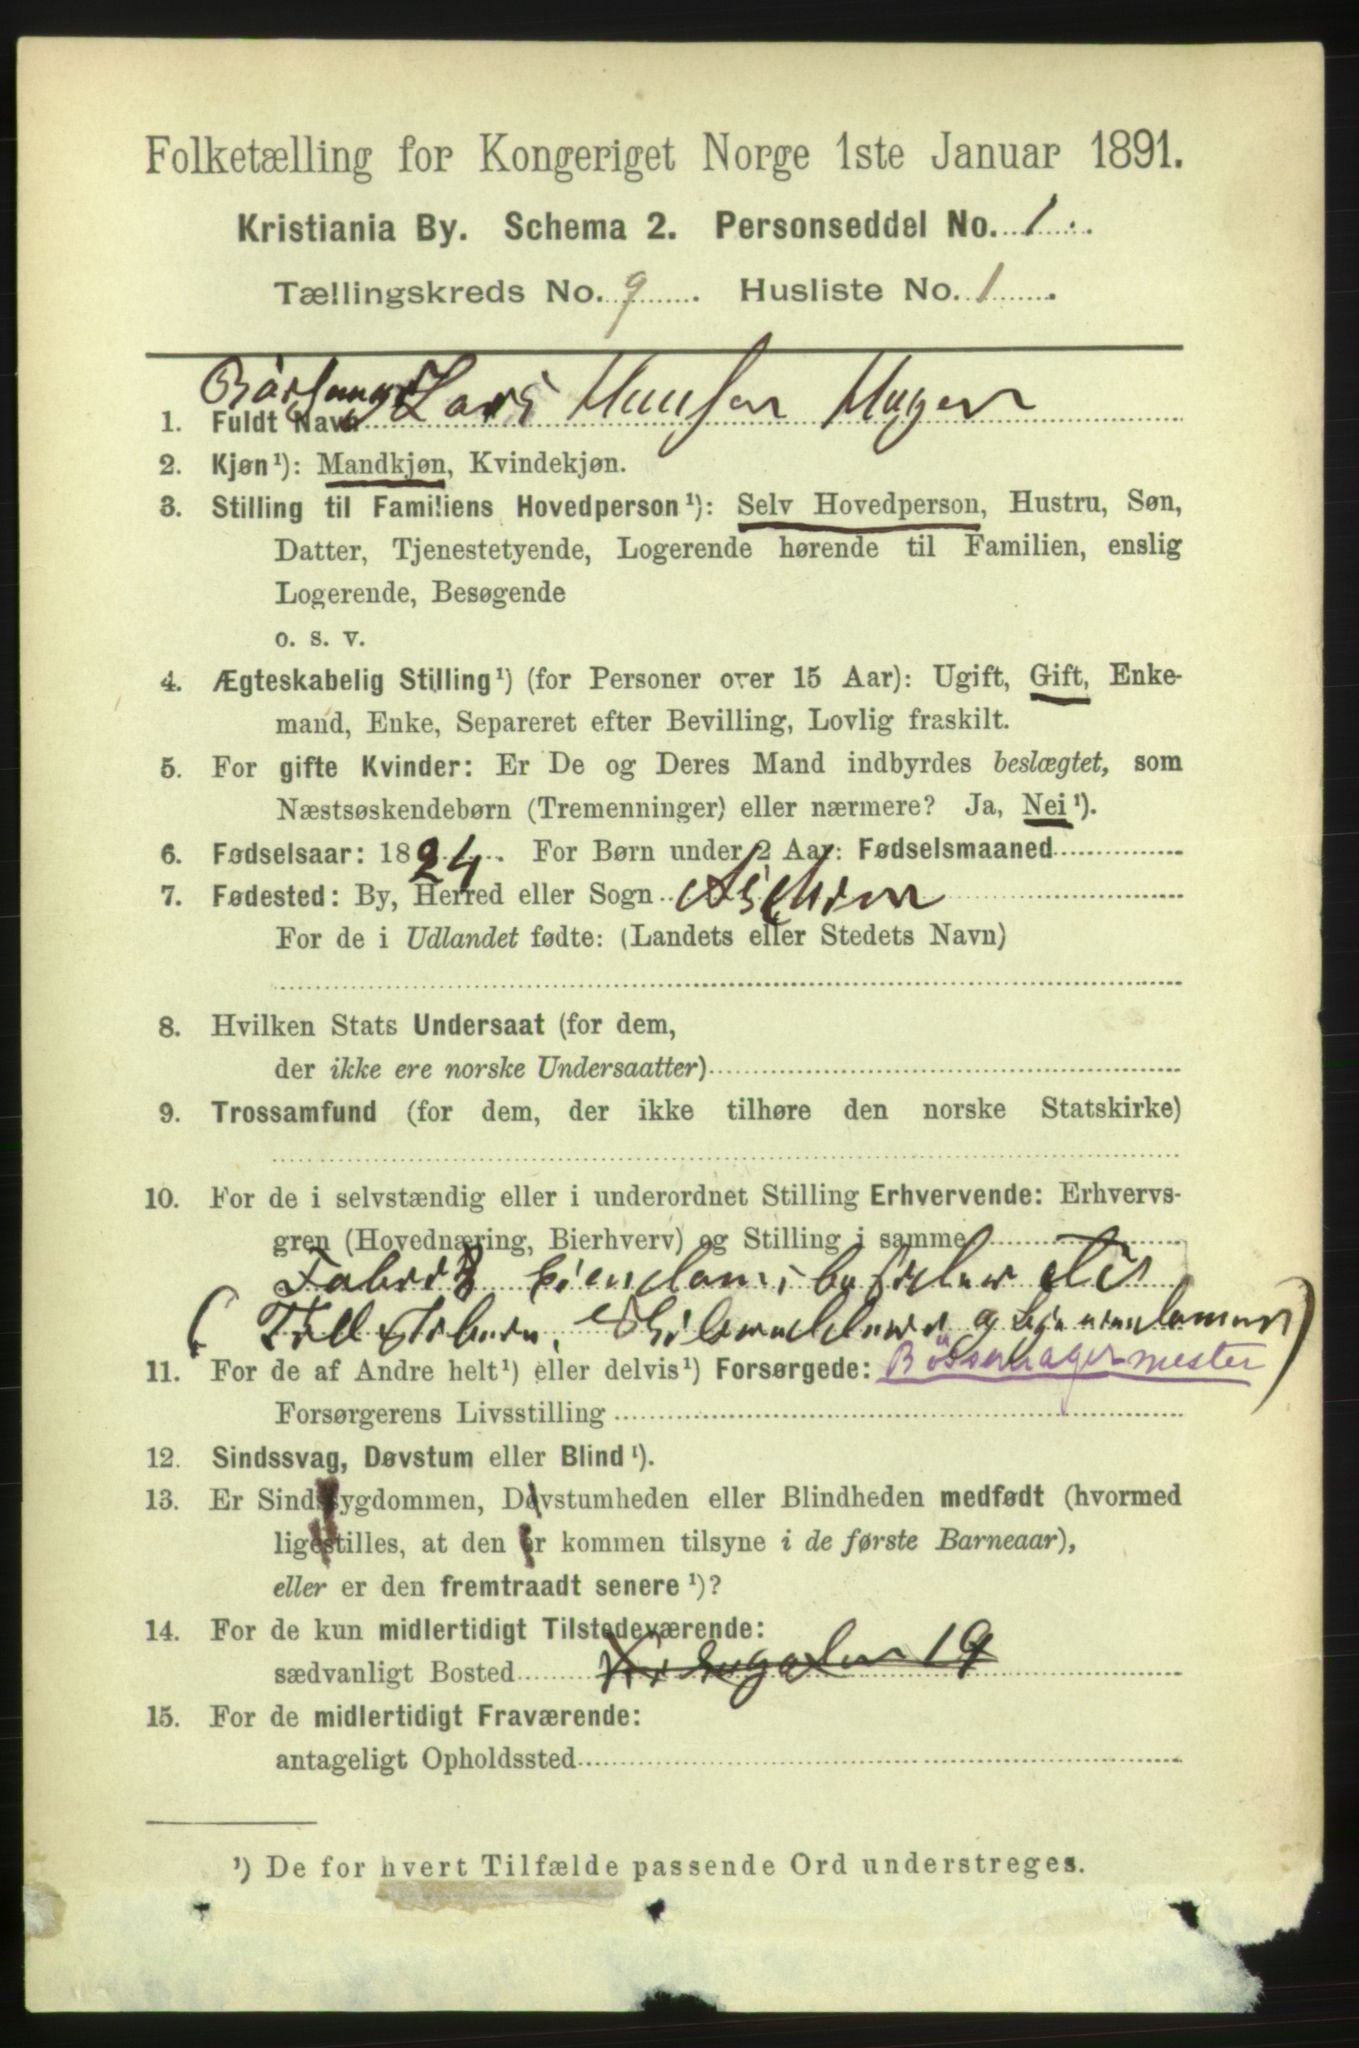 Folketælling for Kongeriget Norge 1ste Januar 1891.
Kristiania By. Schema 2. Personseddel No. 1.
Tællingskreds No. 9. Husliste No. 1.
1. Fuldt Navn Lars Hansen Hagen
2. Kjøn¹): Mandkjøn, Kvindekjøn.
3. Stilling til Familiens Hovedperson¹): Selv Hovedperson, Hustru, Søn,
Datter, Tjenestetyende, Logerende hørende til Familien, enslig
Logerende, Besøgende
o. s. v.
4. Ægteskabelig Stilling¹) (for Personer over 15 Aar): Ugift, Gift, Enke-
mand, Enke, Separeret efter Bevilling, Lovlig fraskilt.
5. For gifte Kvinder: Er De og Deres Mand indbyrdes beslægtet, som
Næstsøskendebørn (Tremenninger) eller nærmere? Ja, Nei¹).
6. Fødselsaar: 1824. For Børn under 2 Aar: Fødselsmaaned
7. Fødested: By, Herred eller Sogn
For de i Udlandet fødte: (Landets eller Stedets Navn)
8. Hvilken Stats Undersaat (for dem,
der ikke ere norske Undersaatter)
9. Trossamfund (for dem, der ikke tilhøre den norske Statskirke)
10. For de i selvstændig eller i underordnet Stilling Erhvervende: Erhvervs-
gren (Hovednæring, Bierhverv) og Stilling i samme
Fabrik
11. For de af Andre helt¹) eller delvis¹) Forsørgede: Bøssemagermester
Forsørgerens Livsstilling
12. Sindssvag, Døvstum eller Blind¹).
13. Er Sindssygdommen, Døvstumheden eller Blindheden medfødt (hvormed
ligestilles, at den er kommen tilsyne i de første Barneaar),
eller er den fremtraadt senere¹)?
14. For de kun midlertidigt Tilstedeværende:
sædvanligt Bosted 19
15. For de midlertidigt Fraværende:
antageligt Opholdssted
¹) De for hvert Tilfælde passende Ord understreges.